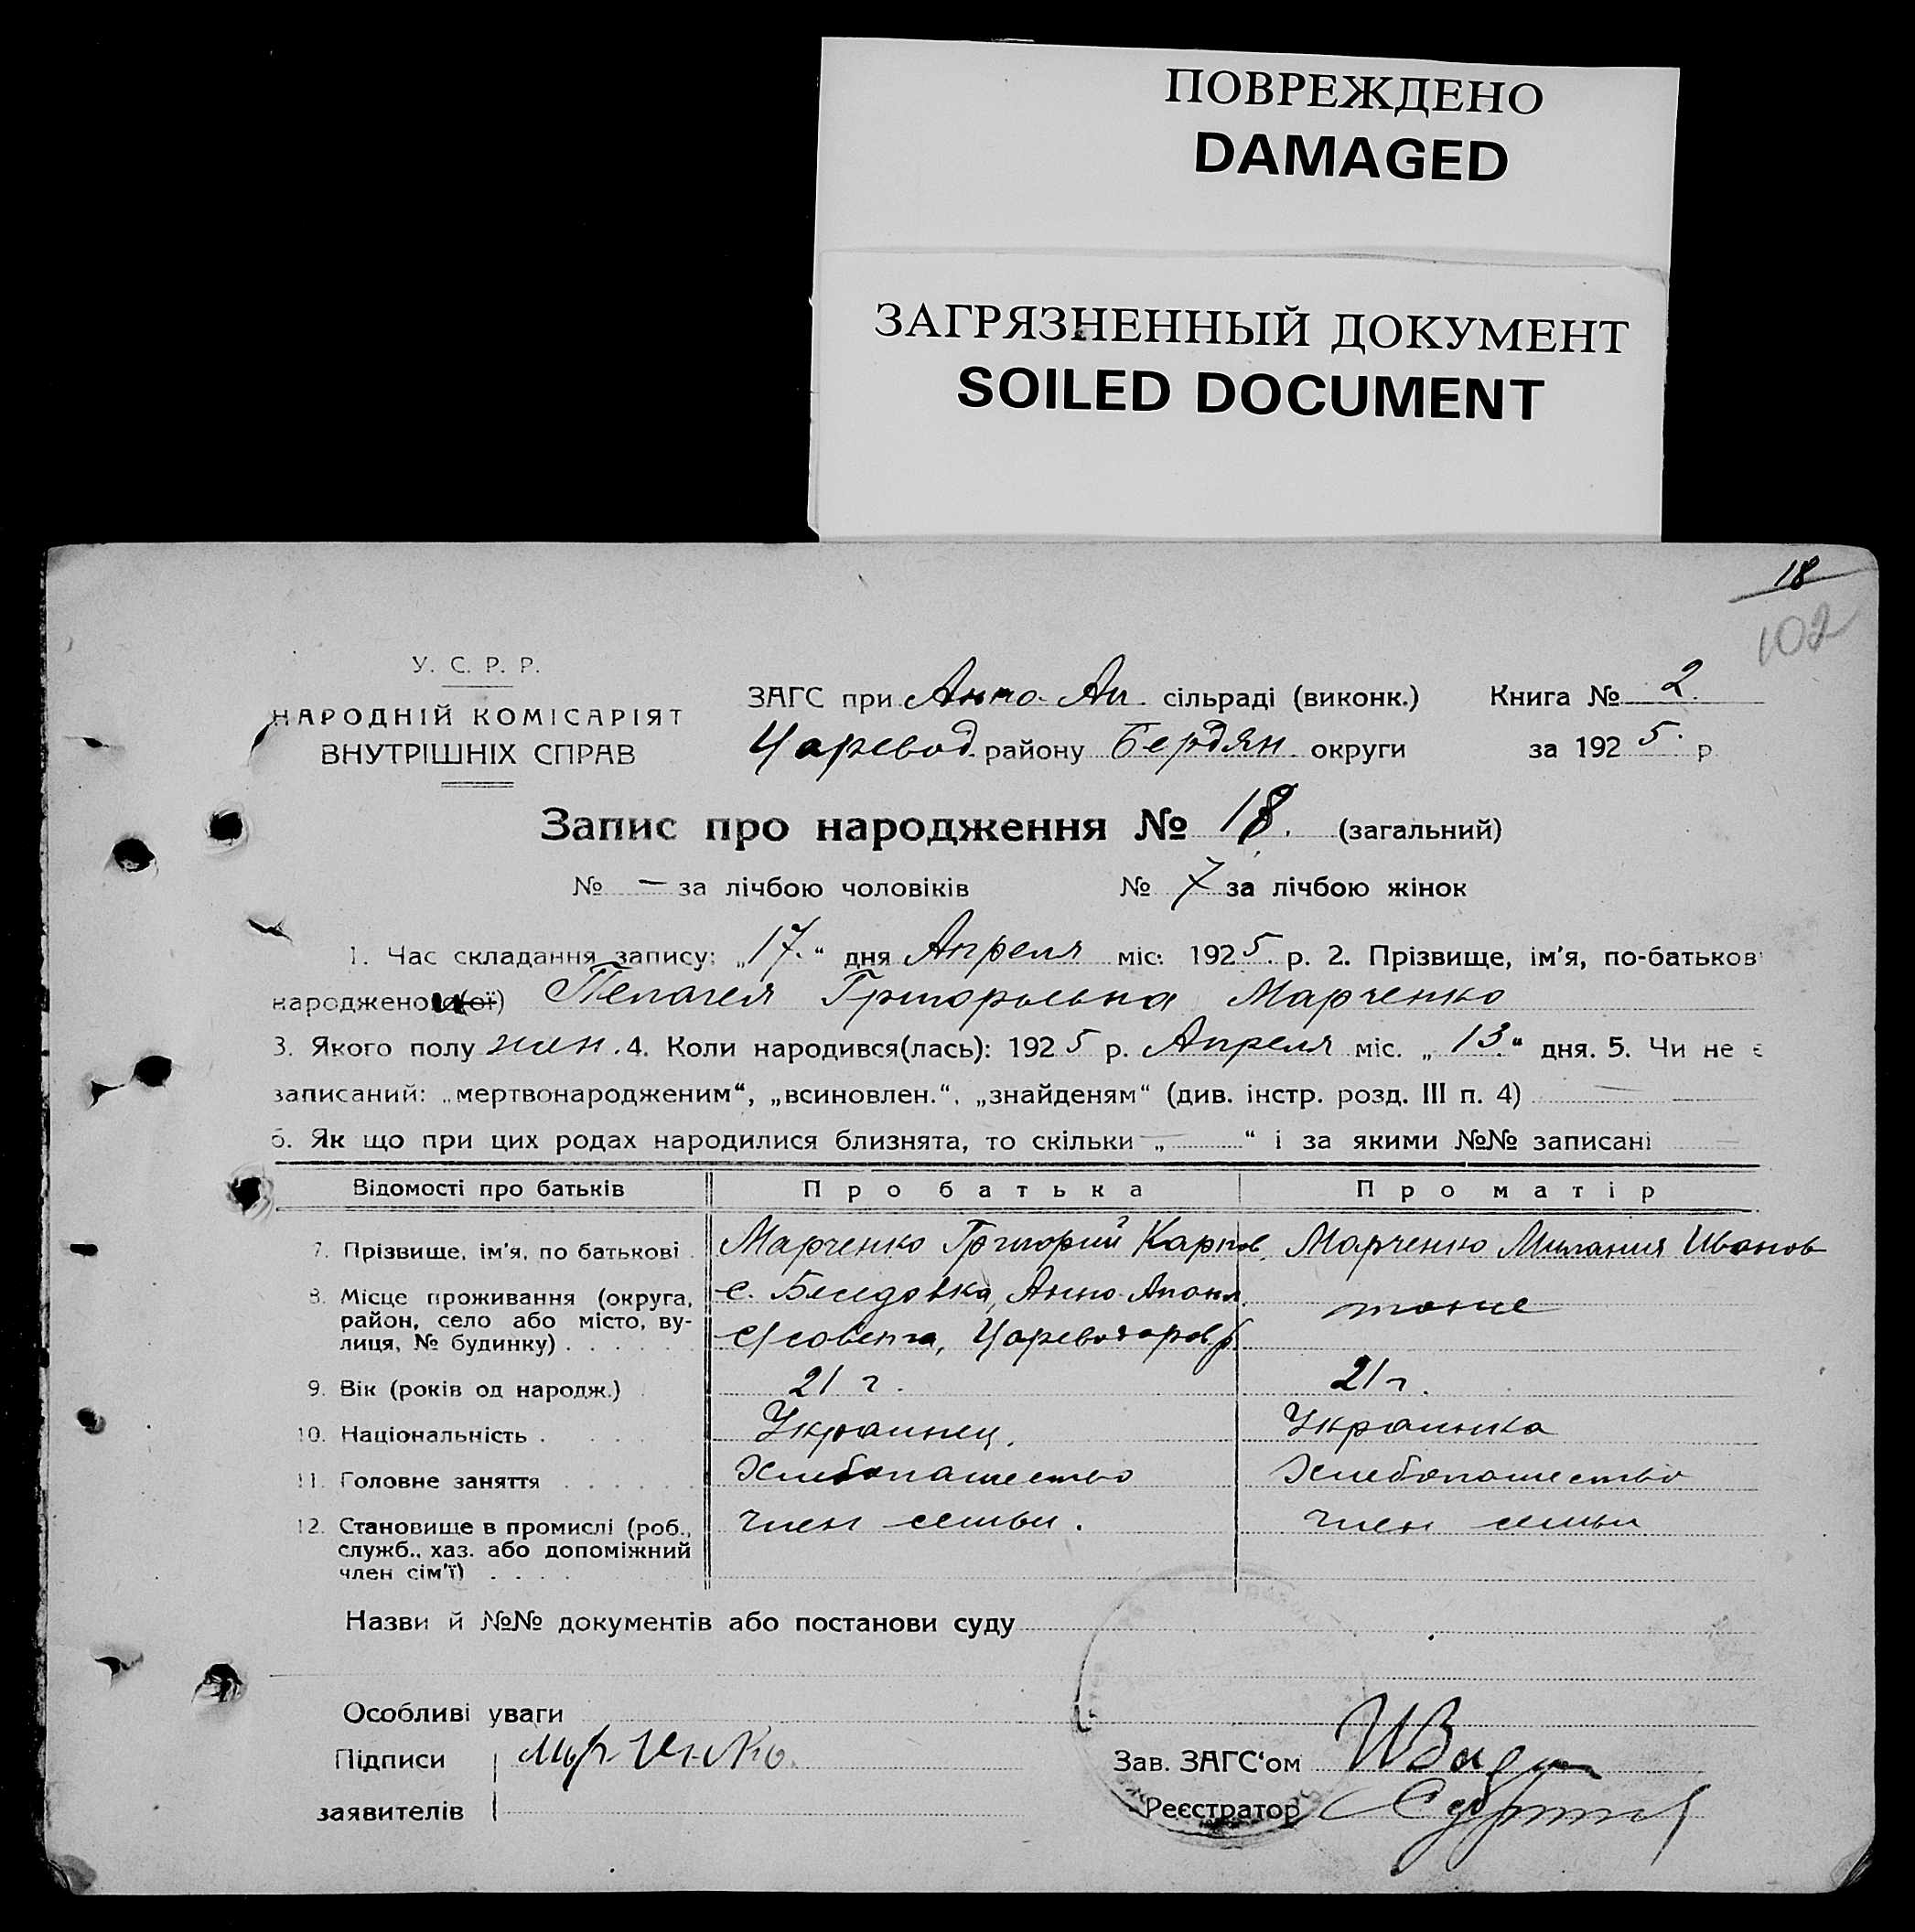 ПОВРЕЖДЕНО
DAMAGED
ЗАГРЯЗНЕННЫЙ ДОКУМЕНТ
SOILED DOCUMENT
18
102
У. С. Р. Р.
НАРОДНІЙ КОМІСАРІЯТ
ВНУТРІШНІХ СПРАВ
ЗАГС при Анно-Ап. сільраді (виконк.) Книга № 2.
Царевод. району Бердян. округи за 1925 р.
Запис про народження № 18. (загальний)
№ — за лічбою чоловіків № 7 за лічбою жінок
1. Час складання запису: „17.“ дня Апреля міс. 1925. р. 2. Прізвище, ім'я, по-батькові
народженого(ої) Пелагея Григорьевна Марченко
3. Якого полу жен. 4. Коли народився(лась): 1925 р. Апреля міс. „13.“ дня. 5. Чи не є
записаний: „мертвонародженим“, „всиновлен.“, „знайденям“ (див. інстр. розд. III п. 4) —
6. Як що при цих родах народилися близнята, то скільки „—“ і за якими №№ записані —
Відомості про батьків Про батька Про матір
7. Прізвище, ім'я, по батькові Марченко Григорий Карпов. Марченко Милания Иванов
8. Місце проживання (округа, район, село або місто, вулиця, № будинку) с. Беседовка, Анно-Апанл. с/совета, Цареводаров. р. тоже
9. Вік (років од народж.) 21 г. 21 г.
10. Національність Украинец. Украинка
11. Головне заняття Хлебопашество Хлебопашество
12. Становище в промислі (роб., служб., хаз. або допоміжний член сім'ї) член семьи. член семьи
Назви й №№ документів або постанови суду
Особливі уваги
Підписи Марченко. Зав. ЗАГС'ом
заявителів Реєстратор